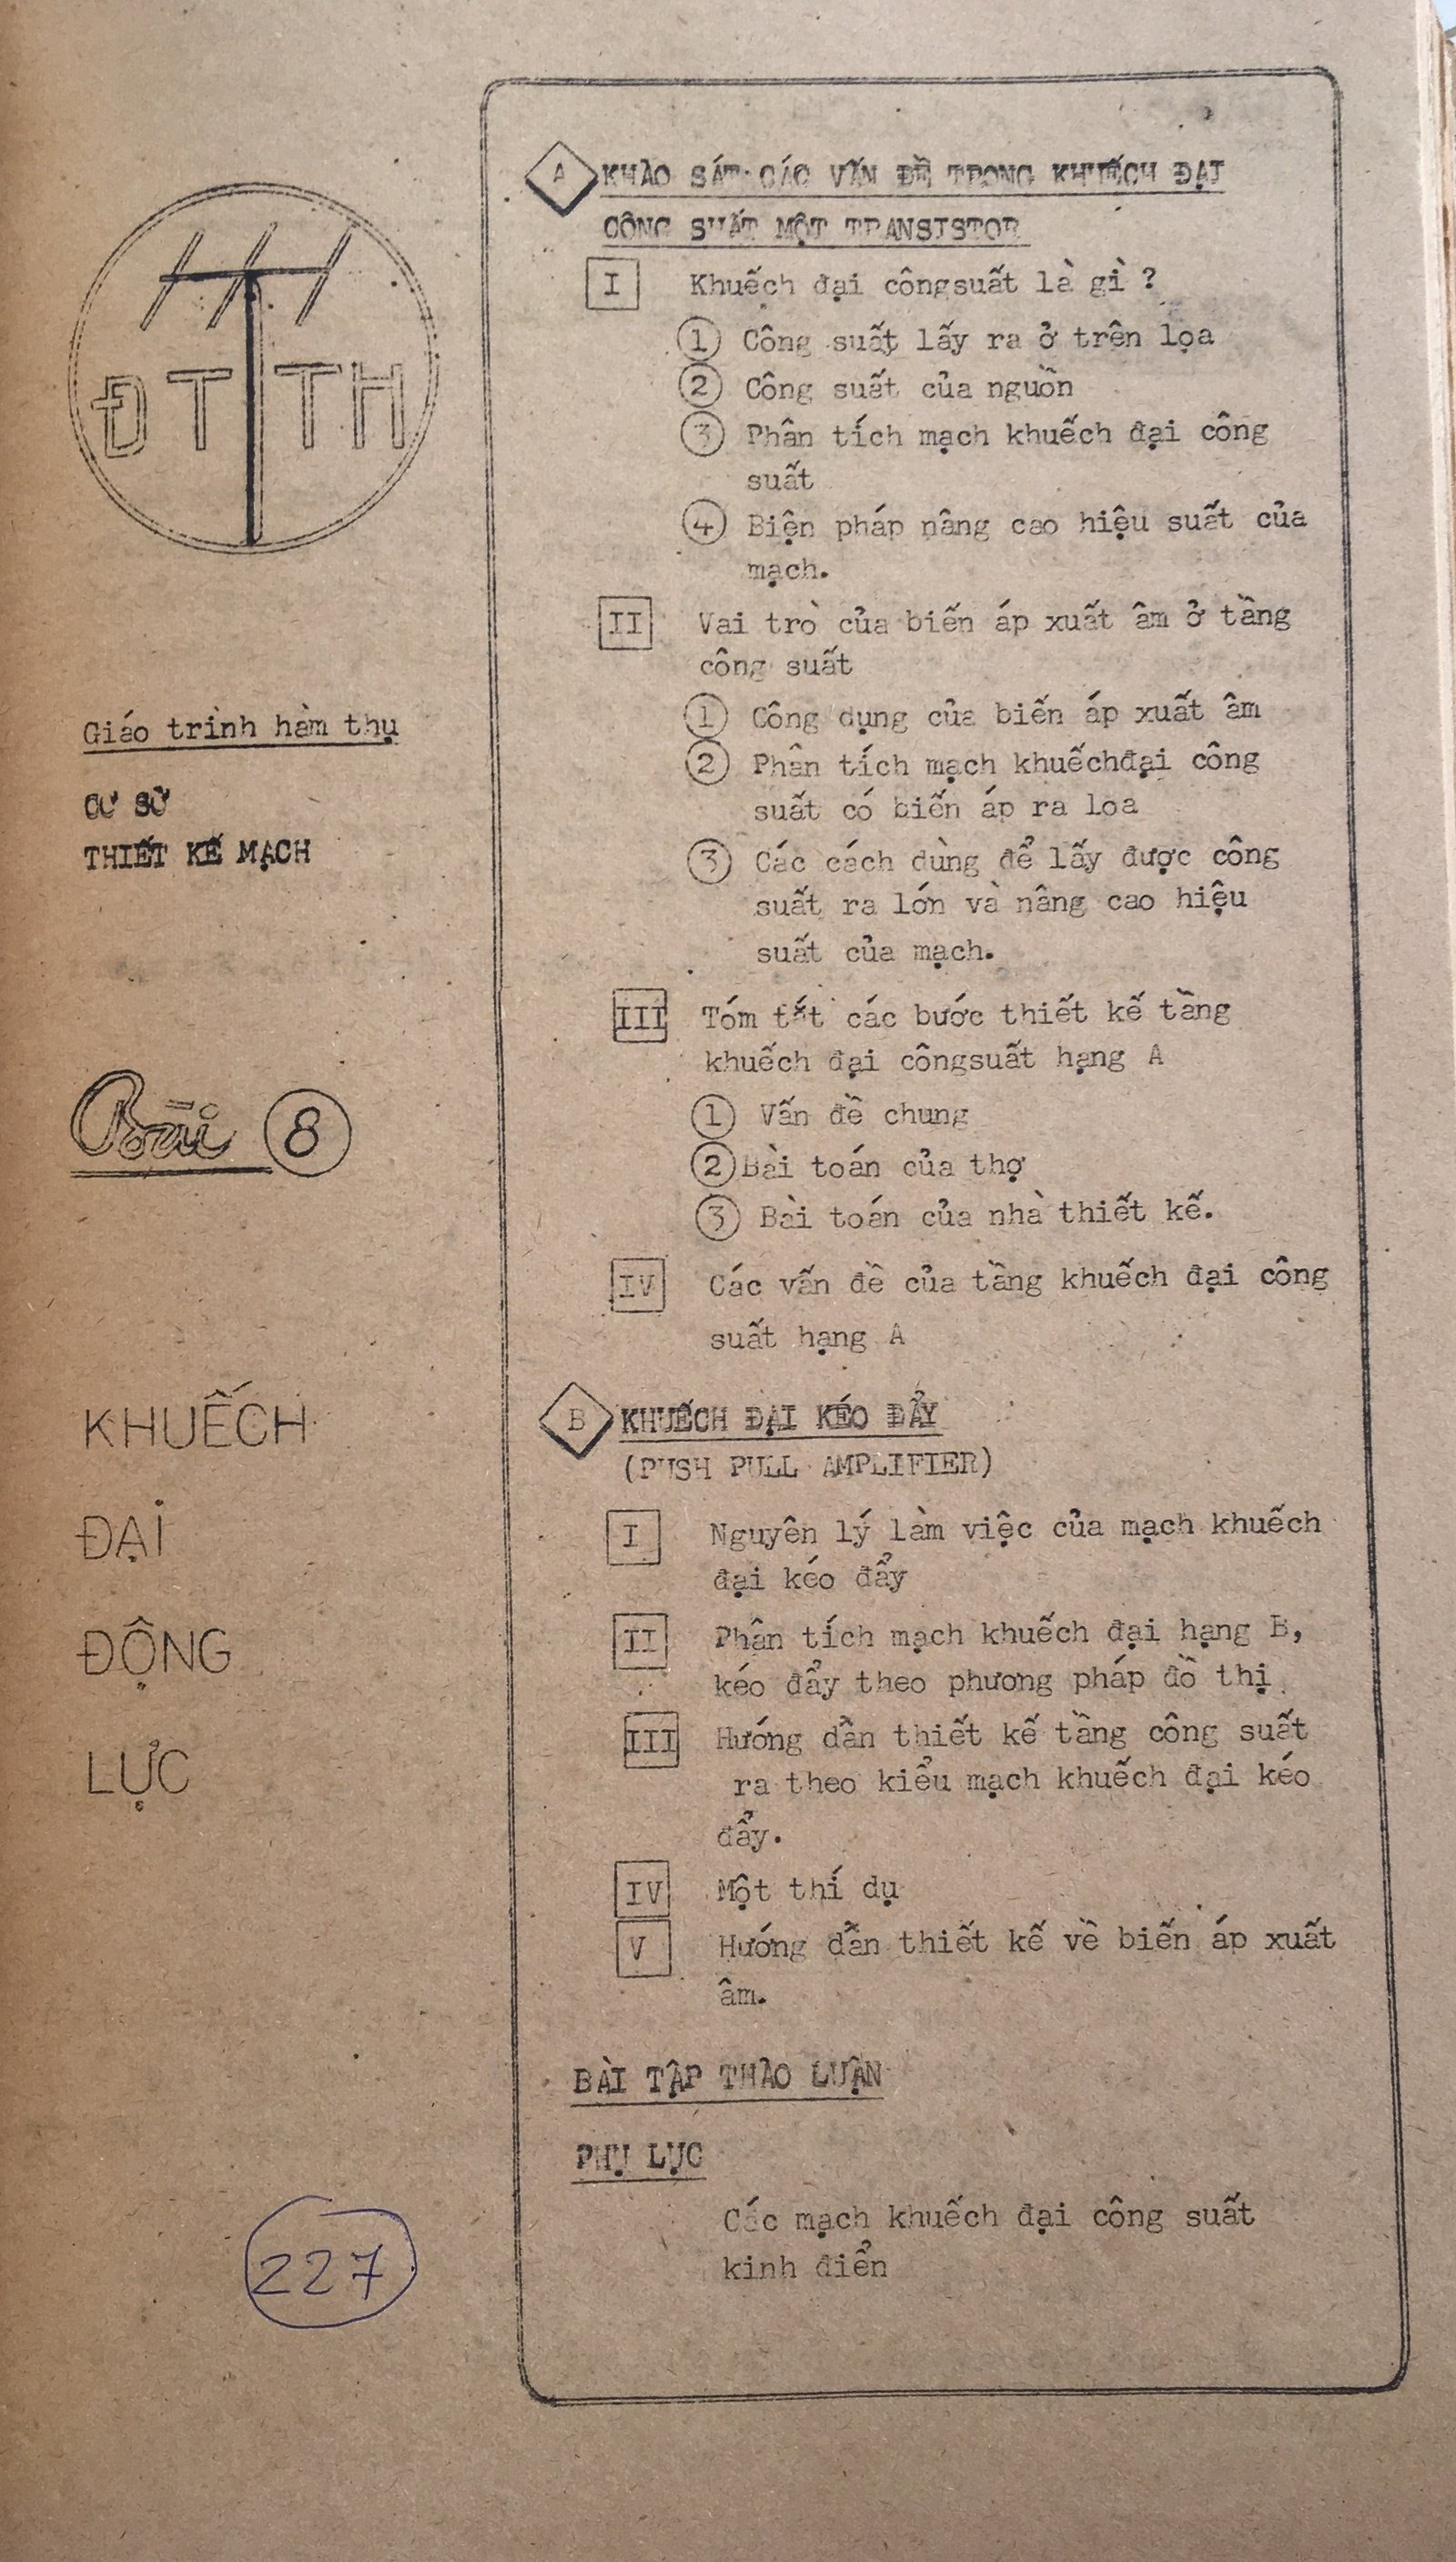 ĐT TH
Giáo trình hàm thụ
CƠ SỞ
THIẾT KẾ MẠCH
Bài 8
KHUẾCH
ĐẠI
ĐỘNG
LỰC
227
A KHẢO SÁT CÁC VẤN ĐỀ TRONG KHUẾCH ĐẠI
CÔNG SUẤT MỘT TRANSISTOR
I Khuếch đại côngsuất là gì ?
1 Công suất lấy ra ở trên lọa
2 Công suất của nguồn
3 Phân tích mạch khuếch đại công
suất
4 Biện pháp nâng cao hiệu suất của
mạch.
II Vai trò của biến áp xuất âm ở tầng
công suất
1 Công dụng của biến áp xuất âm
2 Phân tích mạch khuếchđại công
suất có biến áp ra loa
3 Các cách dùng để lấy được công
suất ra lớn và nâng cao hiệu
suất của mạch.
III Tóm tắt các bước thiết kế tầng
khuếch đại côngsuất hạng A
1 Vấn đề chung
2 Bài toán của thợ
3 Bài toán của nhà thiết kế.
IV Các vấn đề của tầng khuếch đại công
suất hạng A
B KHUẾCH ĐẠI KÉO ĐẨY
(PUSH PULL AMPLIFIER)
I Nguyên lý làm việc của mạch khuếch
đại kéo đẩy
II Phân tích mạch khuếch đại hạng B,
kéo đẩy theo phương pháp đồ thị
III Hướng dẫn thiết kế tầng công suất
ra theo kiểu mạch khuếch đại kéo
đẩy.
IV Một thí dụ
V Hướng dẫn thiết kế về biến áp xuất
âm.
BÀI TẬP THẢO LUẬN
PHỤ LỤC
Các mạch khuếch đại công suất
kinh điển